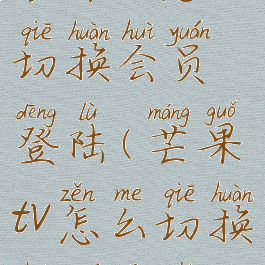 qiē huàn huì yuán
切换会员
dēng lù máng guǒ
登陆(芒果
zěn me qiē huàn
tv怎么切换